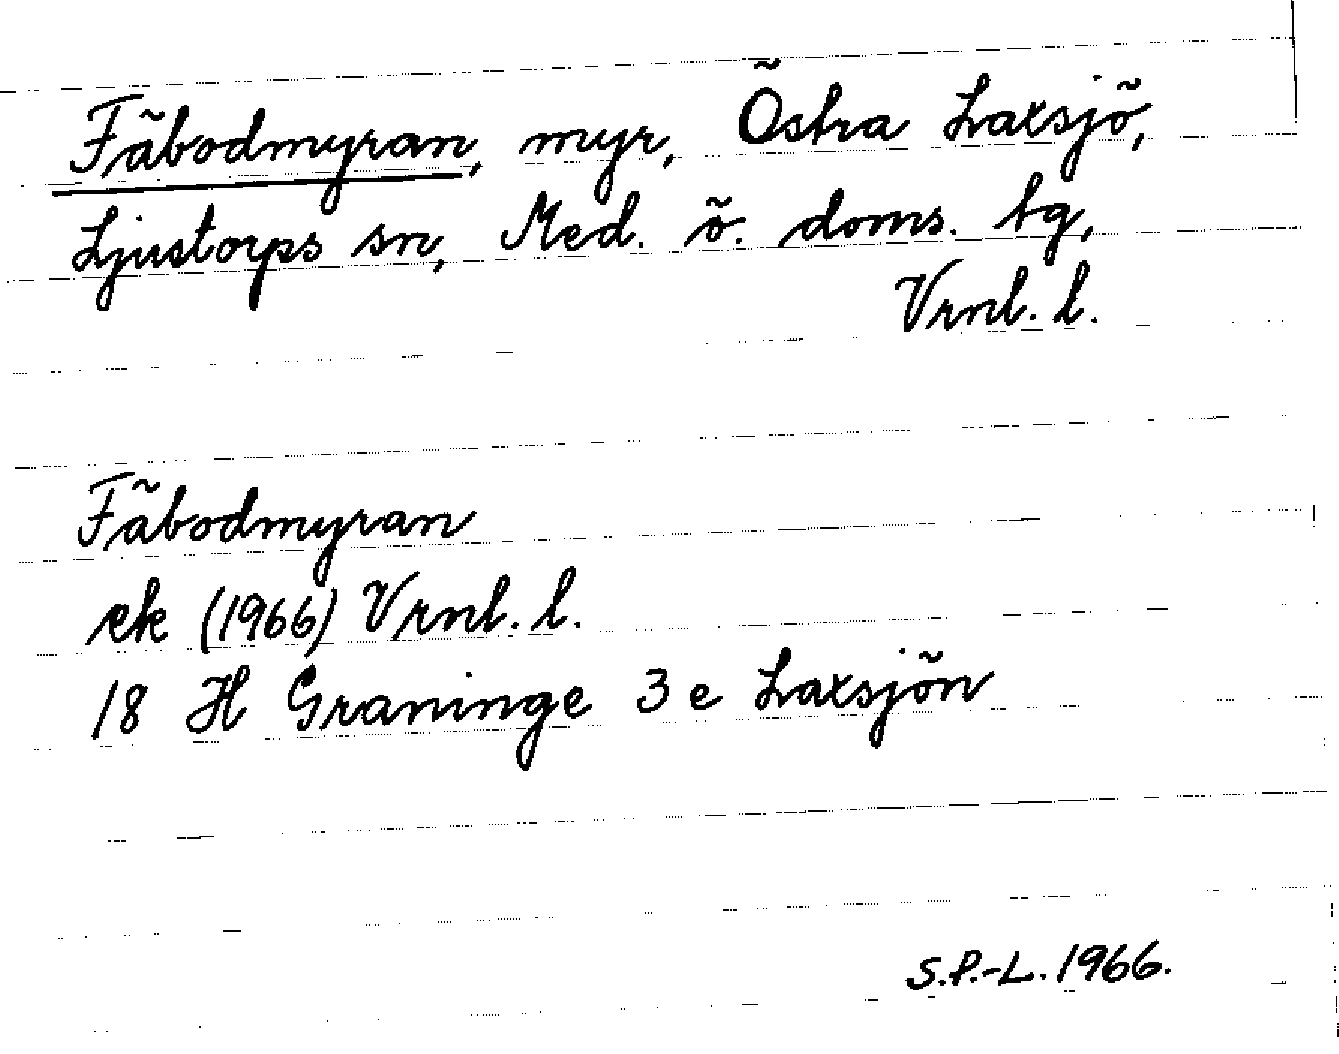 Fãbodmyran, myr, Õstra Laxsjõ,
Ljustorps sn, Med. õ. doms. tg,
Vrnl. l.
Fãbodmyran
ek (1966) Vrnl. l.
18 H Graninge 3 e Laxsjõn
S.P.-L. 1966.